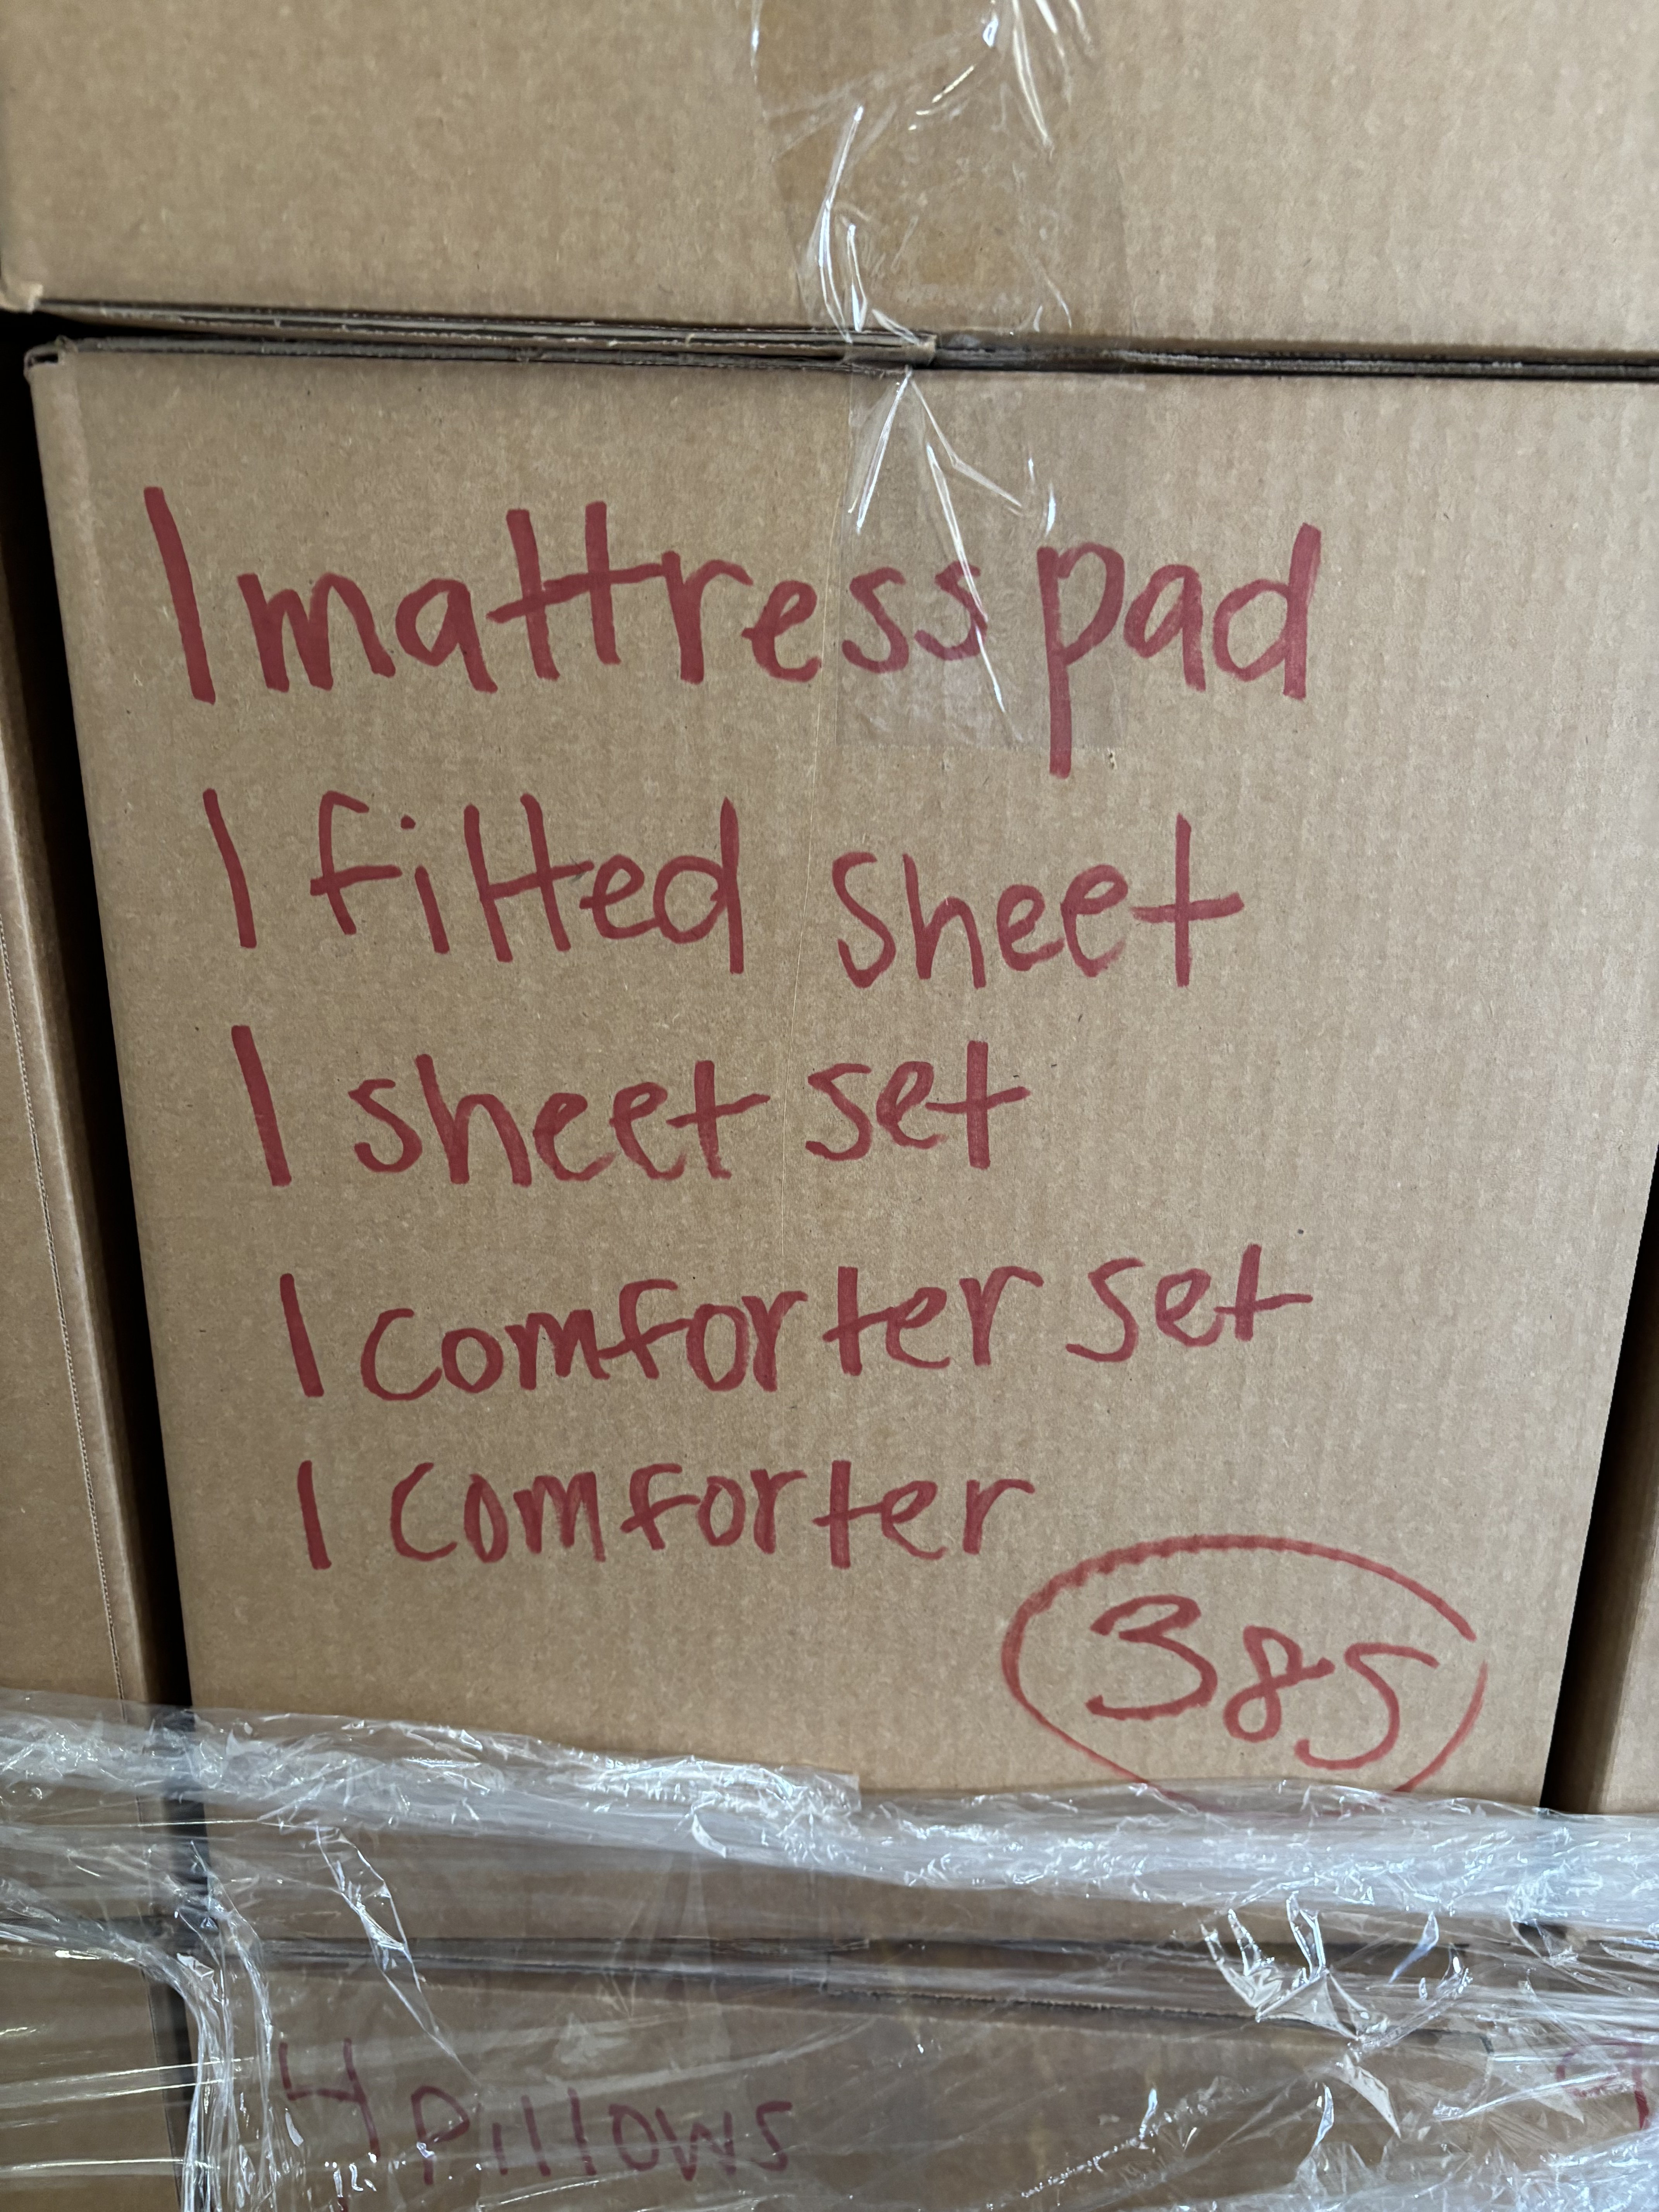 1 mattress pad
1 fitted sheet
1 sheet set
1 comforter set
1 comforter
385
4 Pillows